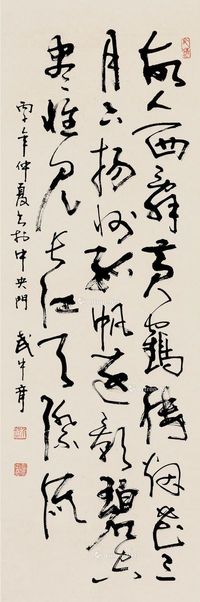 故人西辭黄鶴樓烟花三
月下揚州孤帆遠影碧空
盡惟見長江天際流
丙子年仲夏書於中央門
武中奇